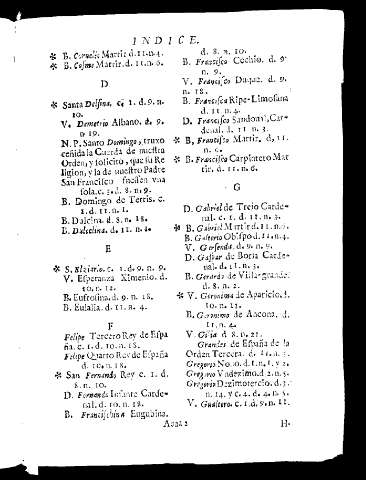 INDICE.
* B. Cornelio Martir d. 11. n. 4.
* B. Cosme Martir. d. 11. n. 6.
D
* Santa Delfina. c. 1. d. 9. n.
10.
V. Demetrio Albano. d. 9.
n 19.
N. P. Santo Domingo, truxo
ceñida la Cuerda de nuestra
Orden, y solicito, que su Re
ligion, y la de nuestro Padre
San Francisco fuessen vna
sola. c. 3. d. 8. n. 9.
B. Domingo de Tetris. c.
1. d. 11. n. 1.
B. Dalcina. d. 8. n. 18.
B. Dulcelina. d. 11. n. 4.
E
* S. Elziario. c. 1. d. 9. n. 9.
V. Esperanza Ximenio. d.
10. n. 12.
B. Eufrosina. d. 9. n. 18.
B. Eulalia. d. 11. n. 4.
F
Felipe Tercero Rey de Espa
ña. c. 1. d. 10. n. 18.
Felipe Quarto Rey de España
d. 10. n. 18.
* San Fernando Rey c. 1. d.
8. n. 10.
D. Fernando Infante Carde-
nal. d. 10. n. 18.
B. Francischina Eugubina.
d. 8. n. 10.
B. Francisco Cechio. d. 9.
n. 9.
V. Francisco Duque. d. 9.
n. 18.
B. Francisco Ripe-Limosana
d. 11. n. 4.
D. Francisco Sandoual, Car-
denal. d. 11. n. 3.
* B. Francisco Martir. d. 11.
* B. Francisco Carpintero Mar
tir. d. 11. n. 6.
G
D. Gabriel de Trejo Carde-
nal. c. 1. d. 11. n. 3.
* B. Gabriel Martir d. 11. n.
B. Galterio Obispo d. 11. n. 4.
V. Gersenda. d. 9. n. 9.
D. Gaspar de Borja Carde-
nal. d. 11. n. 3.
B. Gerardo de Villa-grande.
d. 8. n. 2.
* V. Geronima de Aparicio. d.
11. n.
B. Geronimo de Ancona. d.
11. n. 4.
V. d. 8. n. 21.
Grandes de España de la
Orden Tercera. d. 11. n. 3.
Gregorio Nono. d. 1. n. 1. y 2.
Gregorio Vndezimo. d. 2. n. 5.
Gregorio Dezimotercio. d. 3.
n. 14. y c. 4. d. 4. n. 3.
V. Gualtero. c. 1. d. 9. n. 11.
Aaaa 2
H-